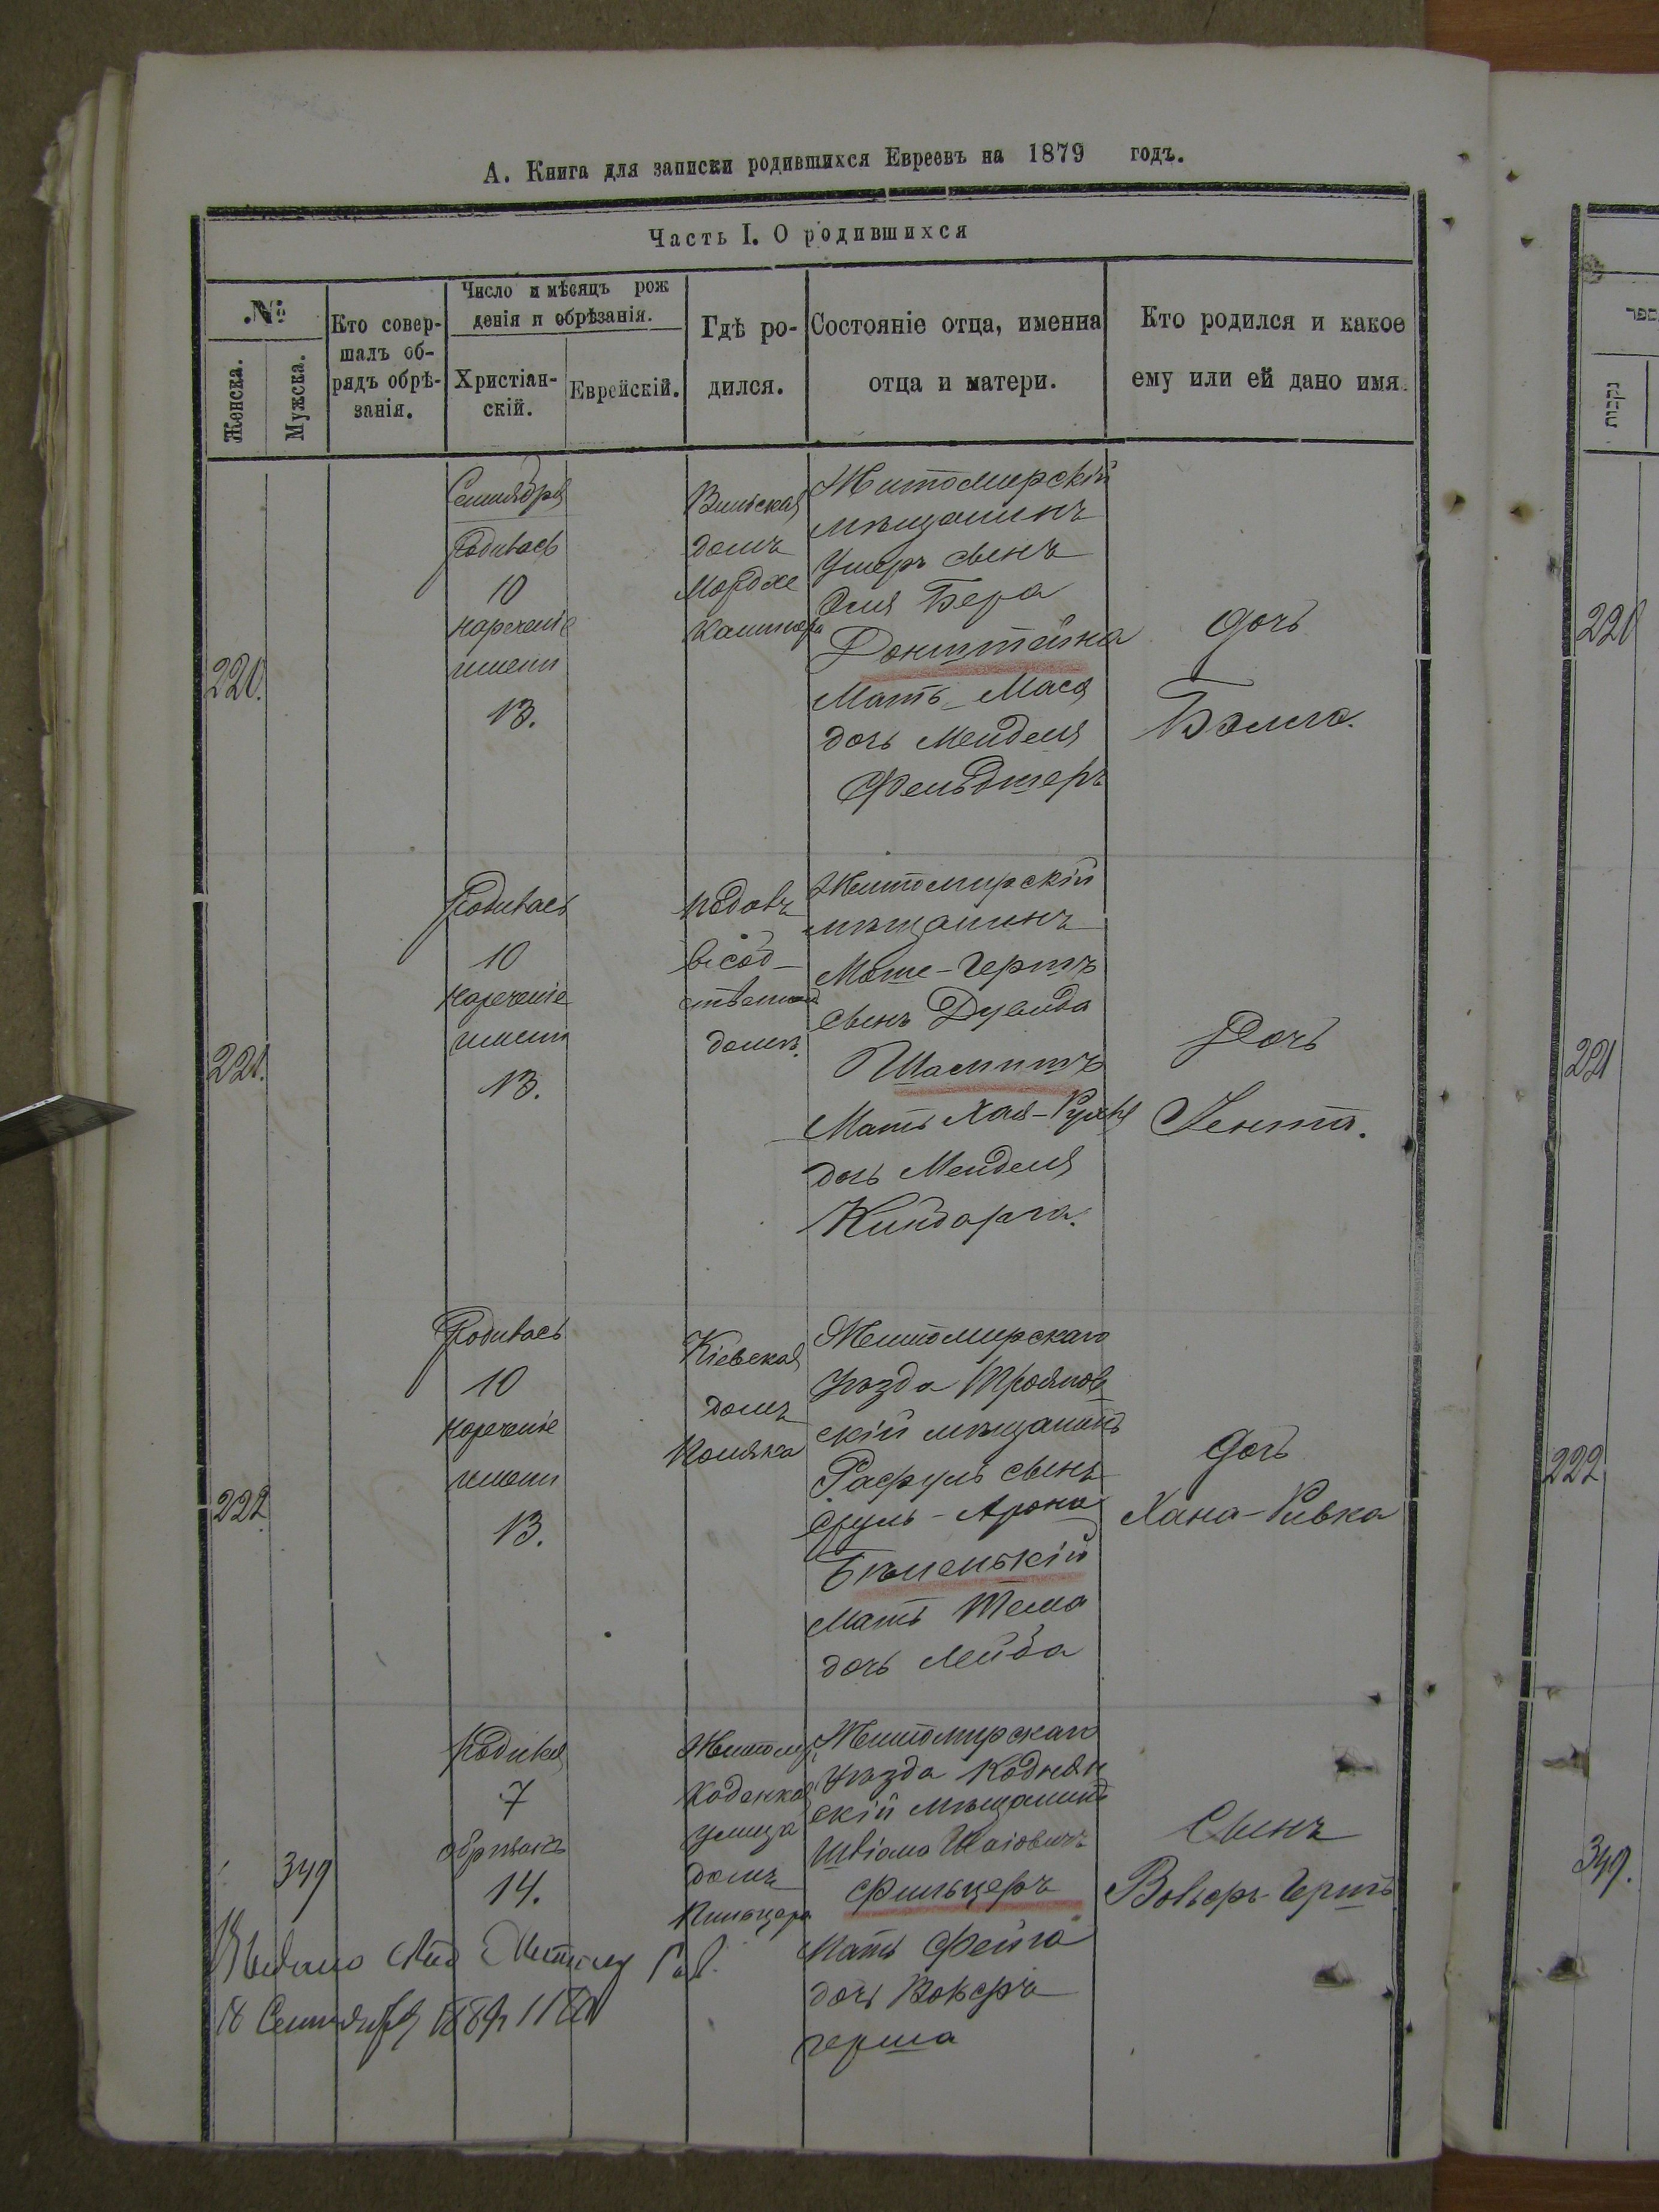 А. Книга для записки родившихся Евреевъ на 1879 годъ.
Часть I. О родившихся
№
Женска.
Мужска.
Кто совер-
шалъ об-
рядъ обрѣ-
занія.
Число и мѣсяцъ рож
денія и обрѣзанія.
Христіан-
скій.
Еврейскій.
Гдѣ ро-
дился.
Состояніе отца, именна
отца и матери.
Кто родился и какое
ему или ей дано имя.
220.
Сентября
Родилась
10
нареченіе
имени
13.
Вильская
домъ
Мордже
Житомирскій
мѣщанинъ
Ушеръ сынъ
Бера
Донштейна
Мать Мася
дочь Менделя
Фельдшеръ
дочь
Бэлга.
220
221.
Родилась
10
нареченіе
имени
13.
въ соб-
ственном
домѣ.
Житомирскій
мѣщанинъ
Моше-Гершъ
сынъ Дувида
Мать Хая-Рухля
дочь Менделя
Дочь
Гента.
221
222
Родилась
10
нареченіе
имени
13.
Кіевская
домъ
Поляка
Житомирскаго
уѣзда Трояно
скій мѣщанинъ
Рафуль сынъ
Сруль-Арона
Бѣленькій
Мать Тема
дочь Лейба
дочь
Хана-Ривка
222
349
Родился
7
обрѣзанъ
14.
Житом
улица
домъ
Житомирскаго
уѣзда Коднян
скій мѣщанинъ
Фильцеръ
Мать Фейга
дочь Вольфъ
Герша
Сынъ
Вольфъ-Гершъ
349.
18 Сентября
ספר
נקבות